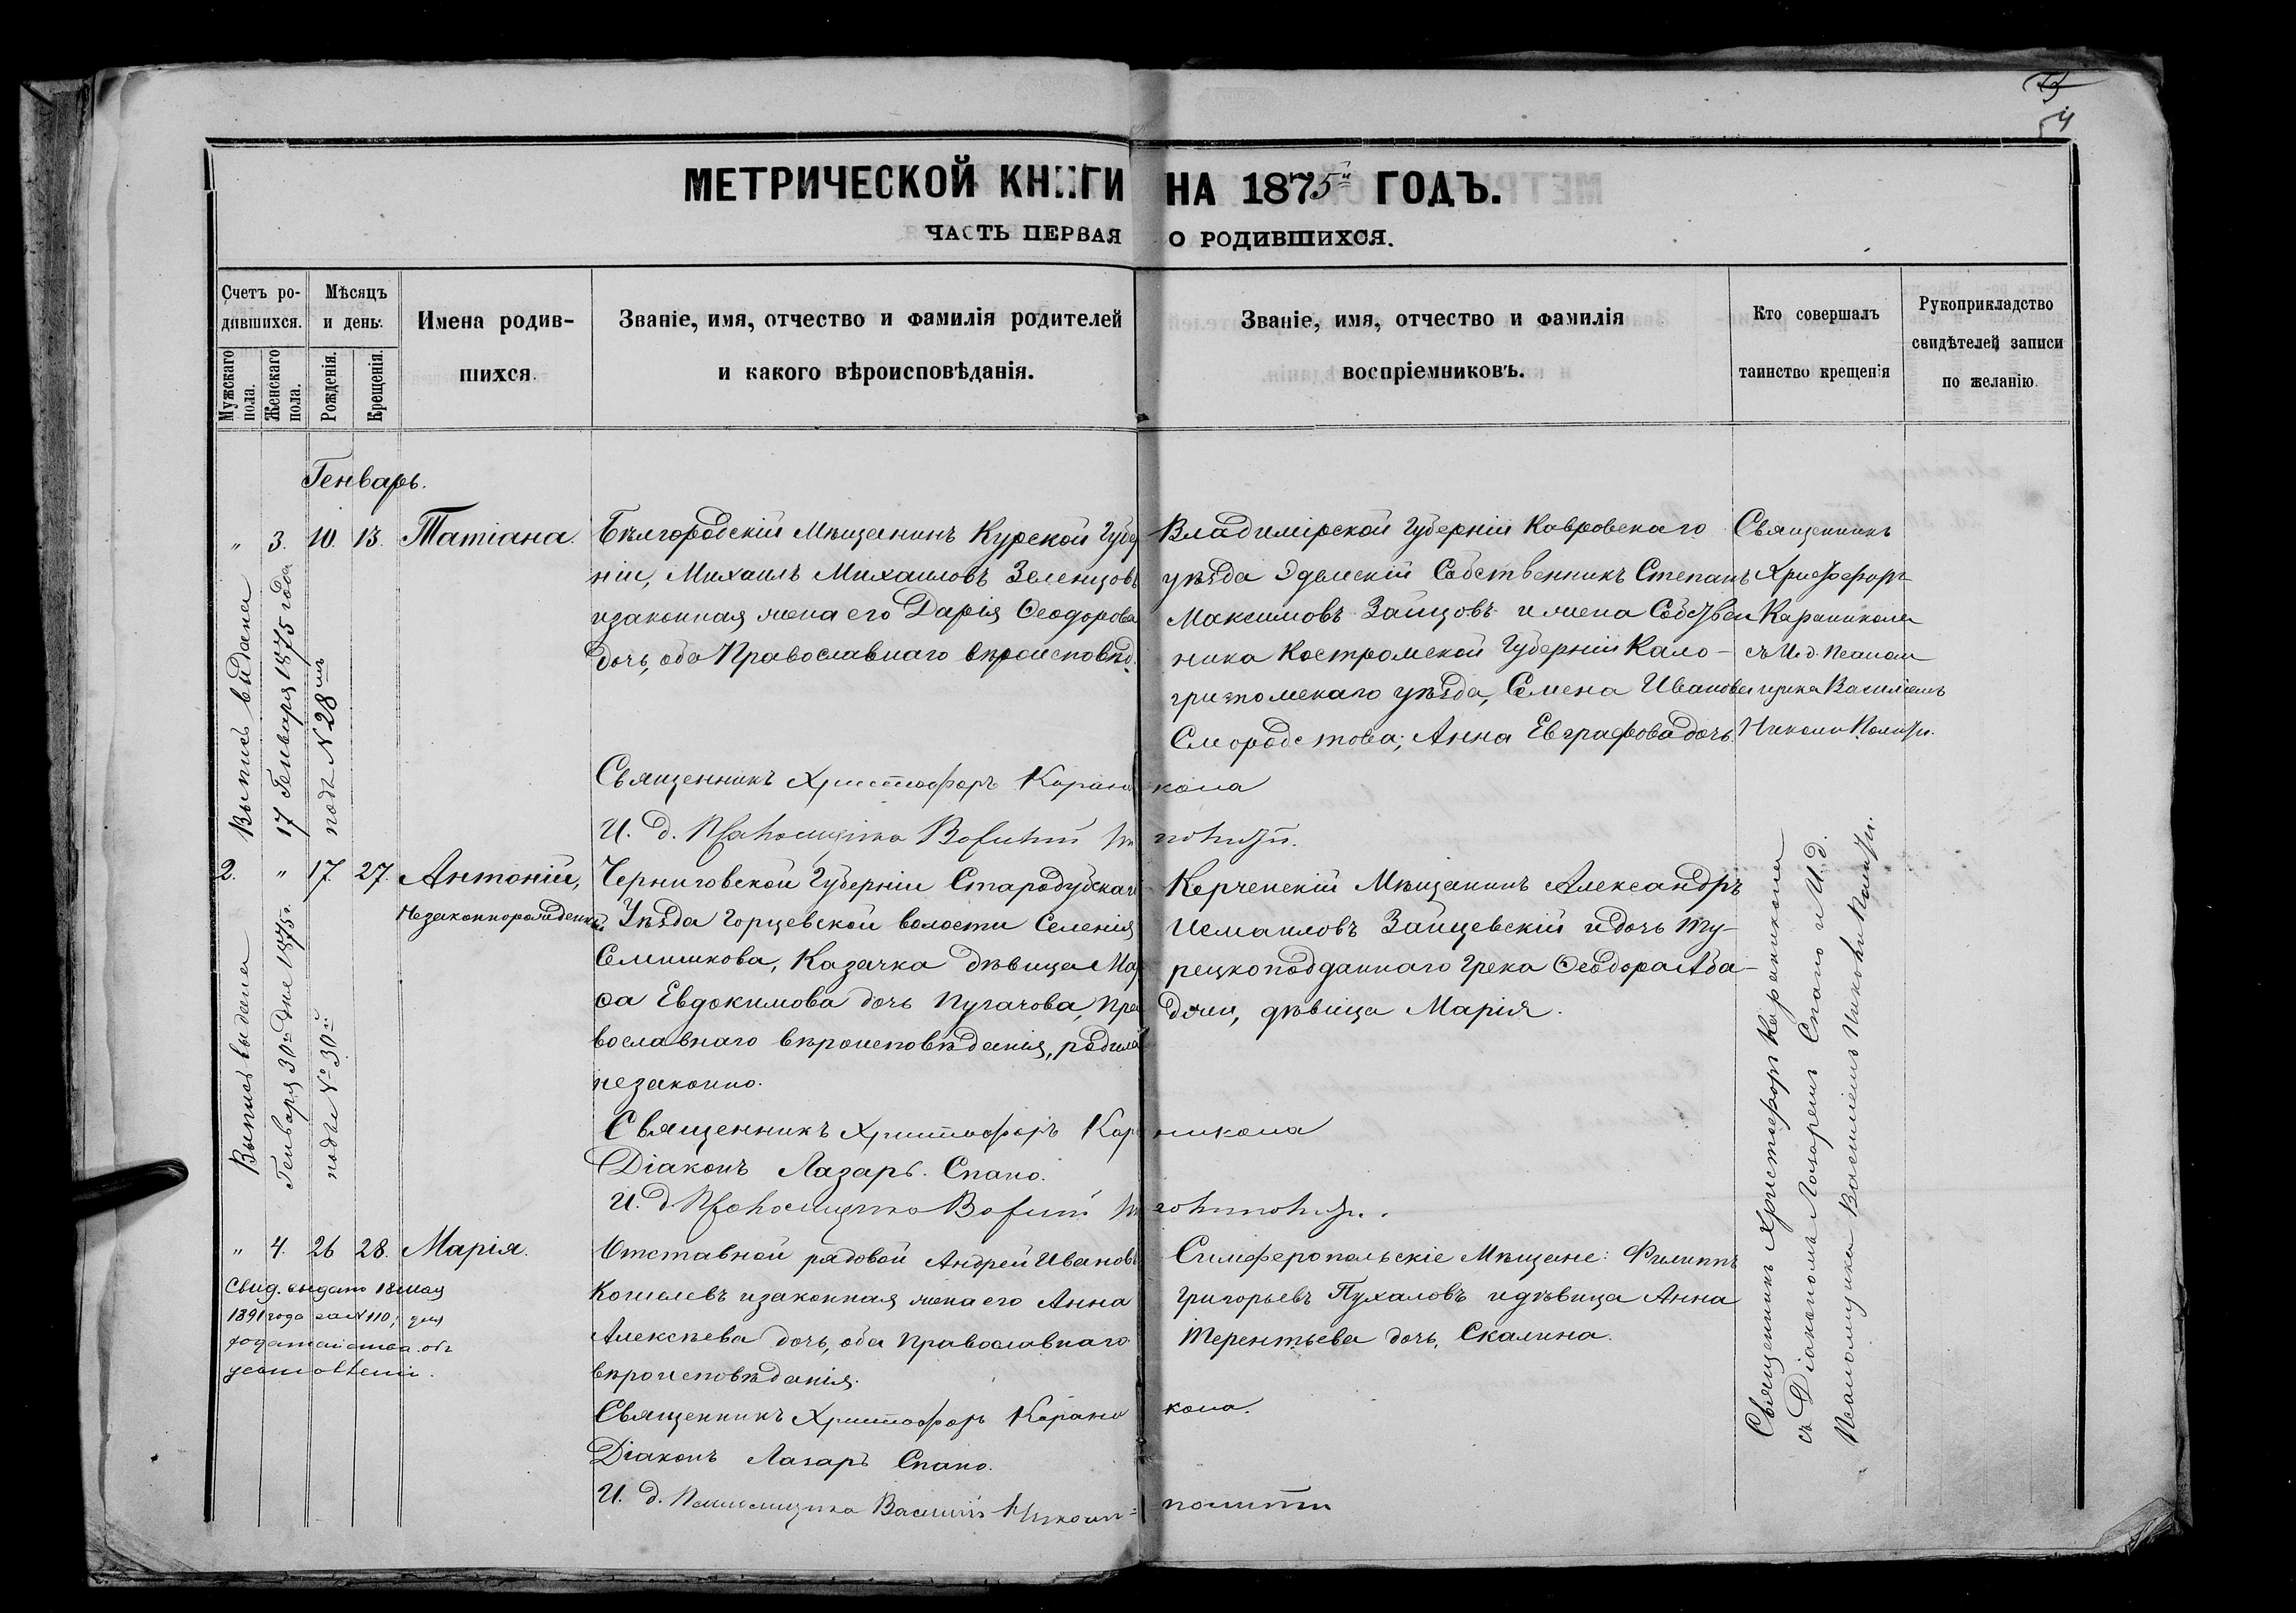 54
МЕТРИЧЕСКОЙ КНИГИ НА 1875й ГОДЪ.
ЧАСТЬ ПЕРВАЯ О РОДИВШИХСЯ.
Счетъ родившихся.
Мужскаго пола.
Женскаго пола.
Мѣсяцъ и день.
Рожденія.
Крещенія.
Имена родившихся.
Званіе, имя, отчество и фамилія родителей
и какого вѣроисповѣданія.
Званіе, имя, отчество и фамилія
воспріемниковъ.
Кто совершалъ
таинство крещенія
Рукоприкладство
свидѣтелей записи
по желанію.
Генварь.
" 3. 10. 13. Татіана.
Бѣлгородскій Мѣщанинъ Курской Губер
ніи, Михаилъ Михаиловъ Зеленцовъ
изаконная жена его Дарія Ѳеодорова
дочь, оба Православнаго вѣроисповѣд.
Владимірской Губерніи Ковровскаго
уѣзда Собственникъ Степанъ
Максимовъ Зайцовъ и жена Собствен
ника Костромской Губерніи Кало-
гривомскаго уѣзда, Семена Иванова
Смородстова; Анна Евграфова дочь.
Священникъ
Христофоръ
Караникола
съ И.д. Псалом
щика Василіемъ
Никополити.
Выпись выдана
17 Генваря 1875 года
подъ N 28мъ
Священникъ Христофоръ Караникола
И. д. Псаломщика Василій
2. " 17. 27. Антоній,
Незаконнорожденный.
Черниговской Губерніи Стародубскаго
Уѣзда Горцевской волости Селенія
Семишкова, Казачка дѣвица Мар
ѳа Евдокимова дочь Пугачова, Пра
вославнаго вѣроисповѣданія, родила
незаконно.
Керченскій Мѣщанинъ Александръ
Исмаиловъ Зайцевскій и дочь Ту-
рецкоподданнаго Грека Ѳеодора Аба-
джи, дѣвица Марія.
Выпись выдана
Генваря 30го дня 1875г.
подъ № 30й
Священникъ Христофоръ Караникола
Діаконъ Лазарь Спано.
И. д. Псаломщика Василій Никополити.
" 4. 26 28. Марія.
Отставной рядовой Андрей Ивановъ
Кошелевъ изаконная жена его Анна
Алексѣева дочь, оба Православнаго
вѣроисповѣданія.
Симферопольскіе Мѣщане: Филиппъ
Григорьевъ Пухаловъ и дѣвица Анна
Терентьева дочь, Скалина.
Свид. выдано 18 мая
1891 года за № 110, для
ходатайства объ
усыновленіи.
Священникъ Христофоръ Караникола.
Діаконъ Лазарь Спано.
И. д. Псаломщика Василій Никополити
Священникъ Христофоръ Караникола
съ Діакономъ Лазаремъ Спано и И.д.
Псаломщика Василіемъ Никополити.